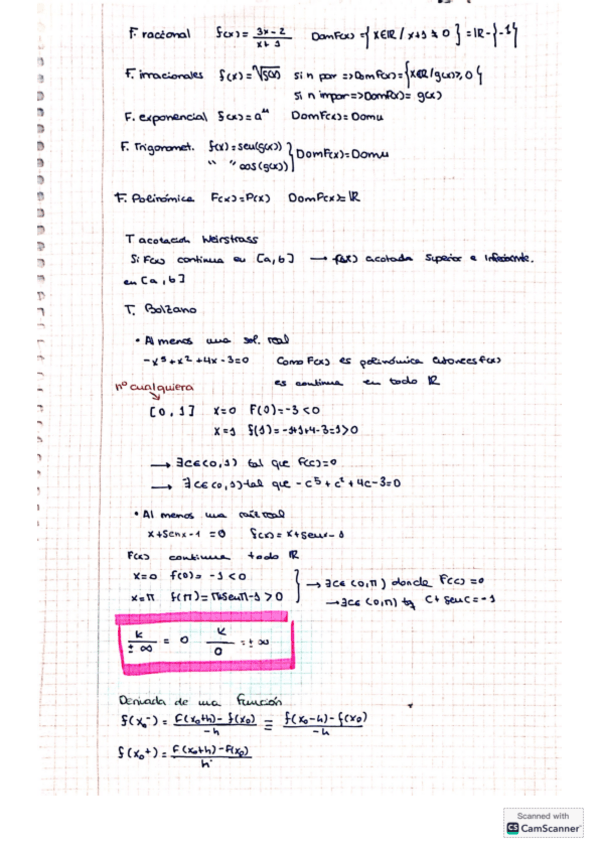 F. racional f(x) = 3x-2 / x+1 Dom F(x) = {x∈ℝ / x+1 ≠ 0} = ℝ-{-1}
F. irracionales f(x) = ⁿ√g(x) si n par => Dom F(x) = {x∈ℝ / g(x) ≥ 0}
si n impar => Dom F(x) = g(x)
F. exponencial f(x) = a^u Dom F(x) = Dom u
F. Trigonomet. f(x) = sen(g(x))
" " cos(g(x)) } Dom F(x) = Dom u
F. Polinómica F(x) = P(x) Dom F(x) = ℝ
T acotación Weirstrass
Si F(x) continua en [a,b] → f(x) acotada superior e inferiormente.
en [a,b]
T. Bolzano
• Al menos una sol. real
-x⁵+x²+4x-3=0 Como F(x) es polinómica entonces f(x)
es continua en todo ℝ
nº cualquiera
[0,1] x=0 F(0)=-3<0
x=1 f(1)=-1+1+4-3=1>0
→ ∃c∈(0,1) tal que f(c)=0
→ ∃c∈(0,1) tal que -c⁵+c²+4c-3=0
• Al menos una raíz real
x+senx-1=0 f(x)=x+senx-1
F(x) continua todo ℝ
x=0 f(0)=-1<0
x=π f(π)=π+senπ-1>0
} → ∃c∈(0,π) donde F(c)=0
→ ∃c∈(0,π) tq c+senc=-1
k/±∞ = 0 k/0 = ±∞
Derivada de una función
f(x₀⁻) = F(x₀+h)-f(x₀) / -h = f(x₀-h)-f(x₀) / -h
f(x₀⁺) = F(x₀+h)-f(x₀) / h
Scanned with
CS CamScanner